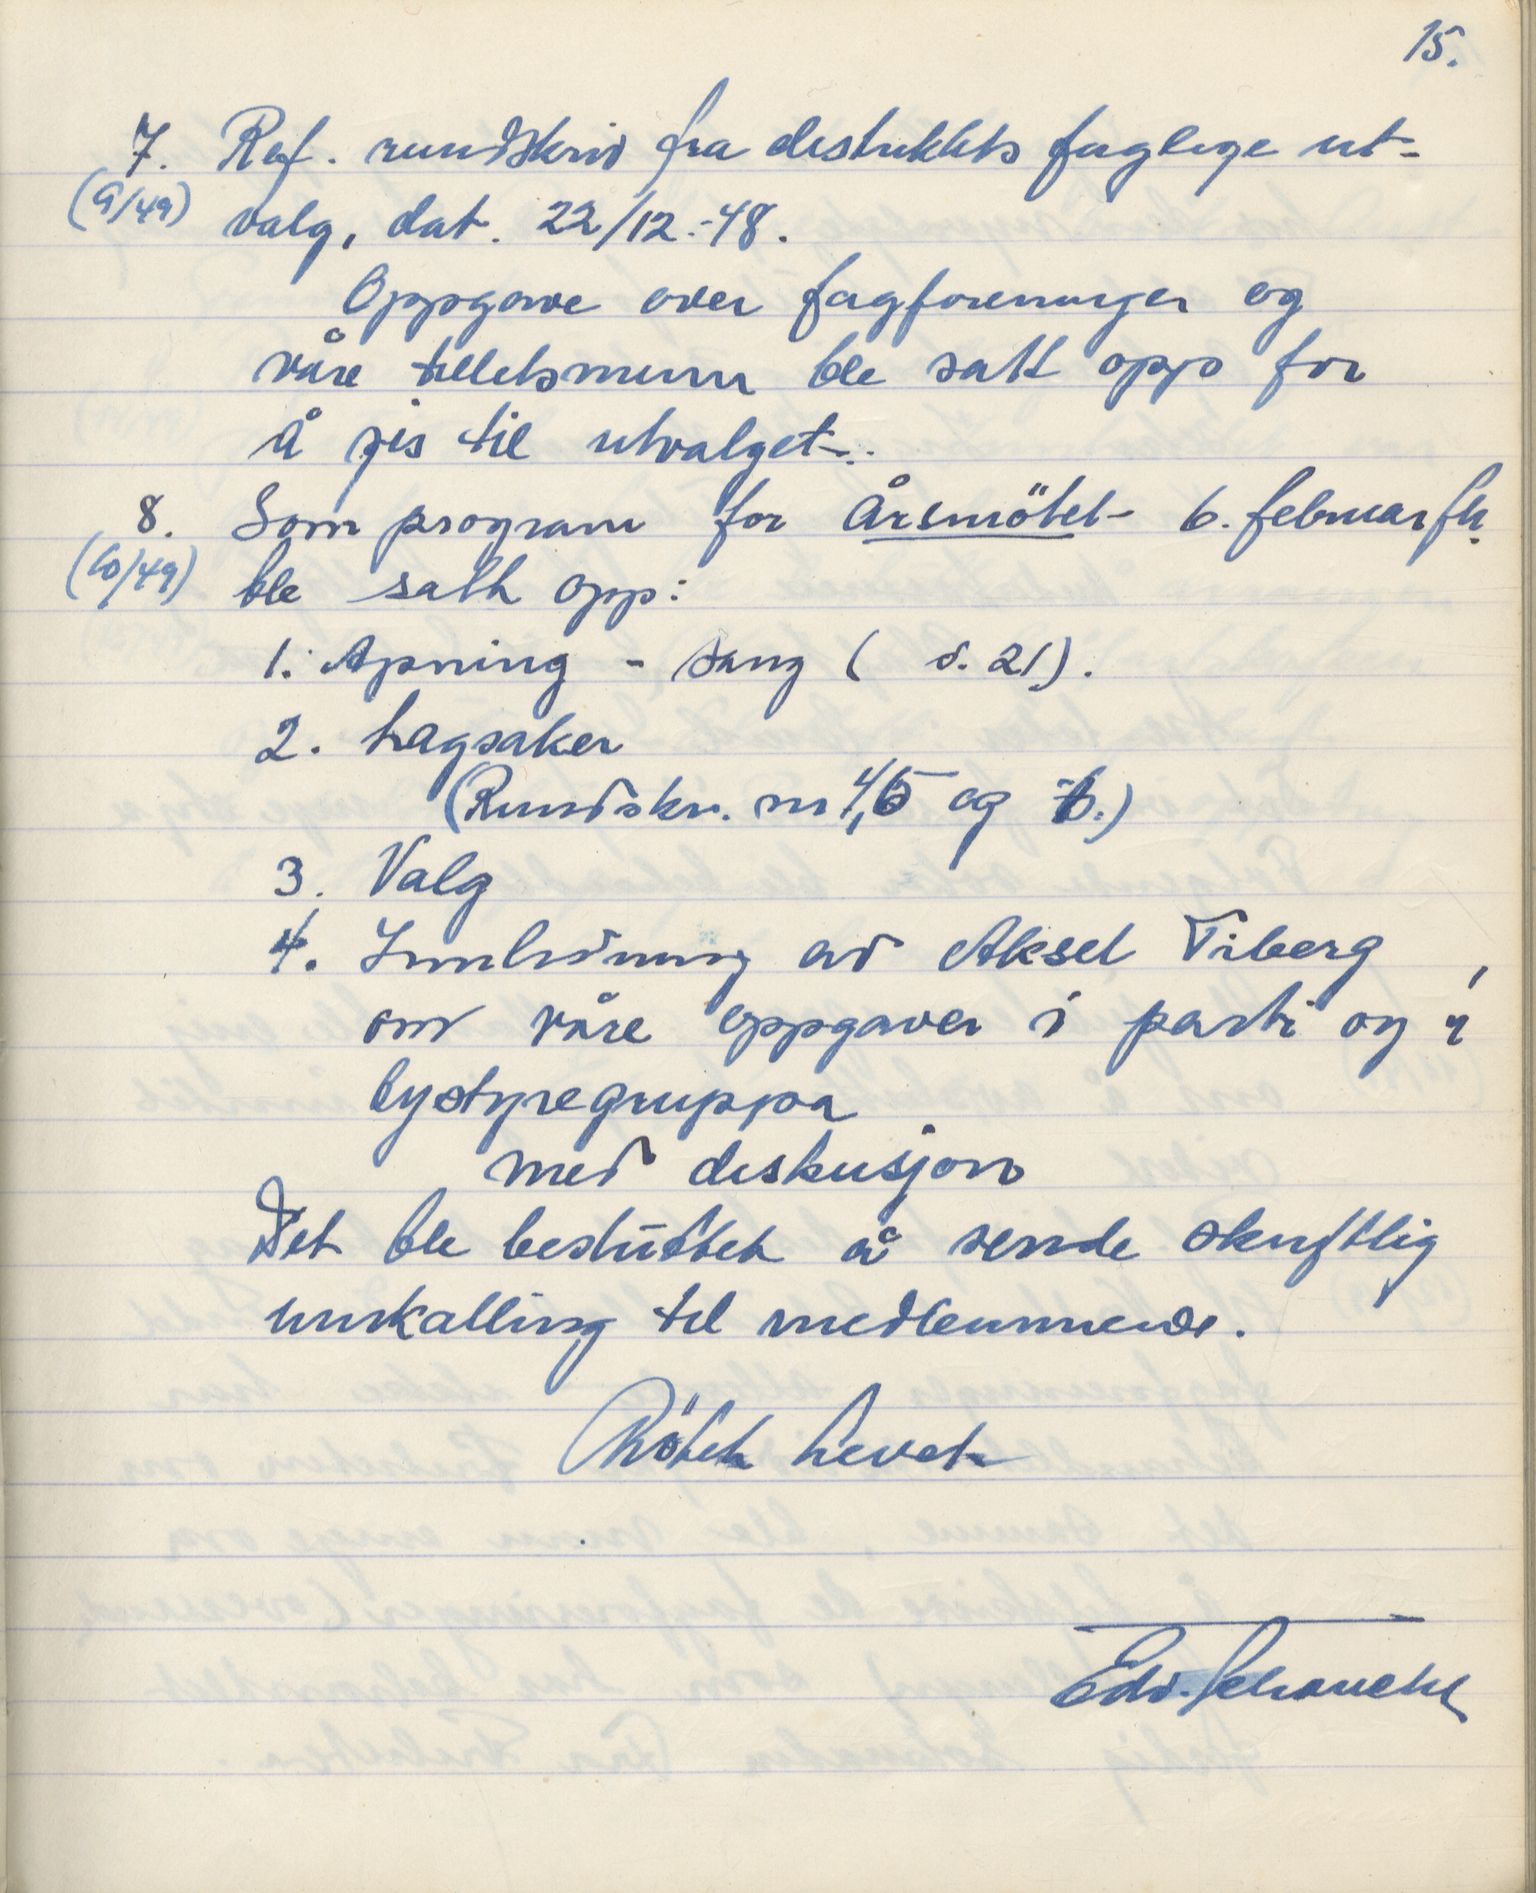 15.
7. Ref. rundskriv fra distriktets faglige ut-
(9/49) valg, dat. 22/12.-48.
Oppgave over fagforeninger og
våre tillitsmenn ble satt opp for
å gis til utvalget.
8. Som program for Årsmötet 6. februar fk.
(10/49) ble satt opp:
1. Apning - sang ( s. 21).
2. Lagsaker
(Rundskr. nr 4,5 og 6.)
3. Valg
4. Innledning av Aksel Tiberg
om våre oppgaver i parti og i
bystyregruppa
med diskusjon
Det ble besluttet å sende skriftlig
innkalling til medlemmene.
Mötet hevet
Edv. Schanche